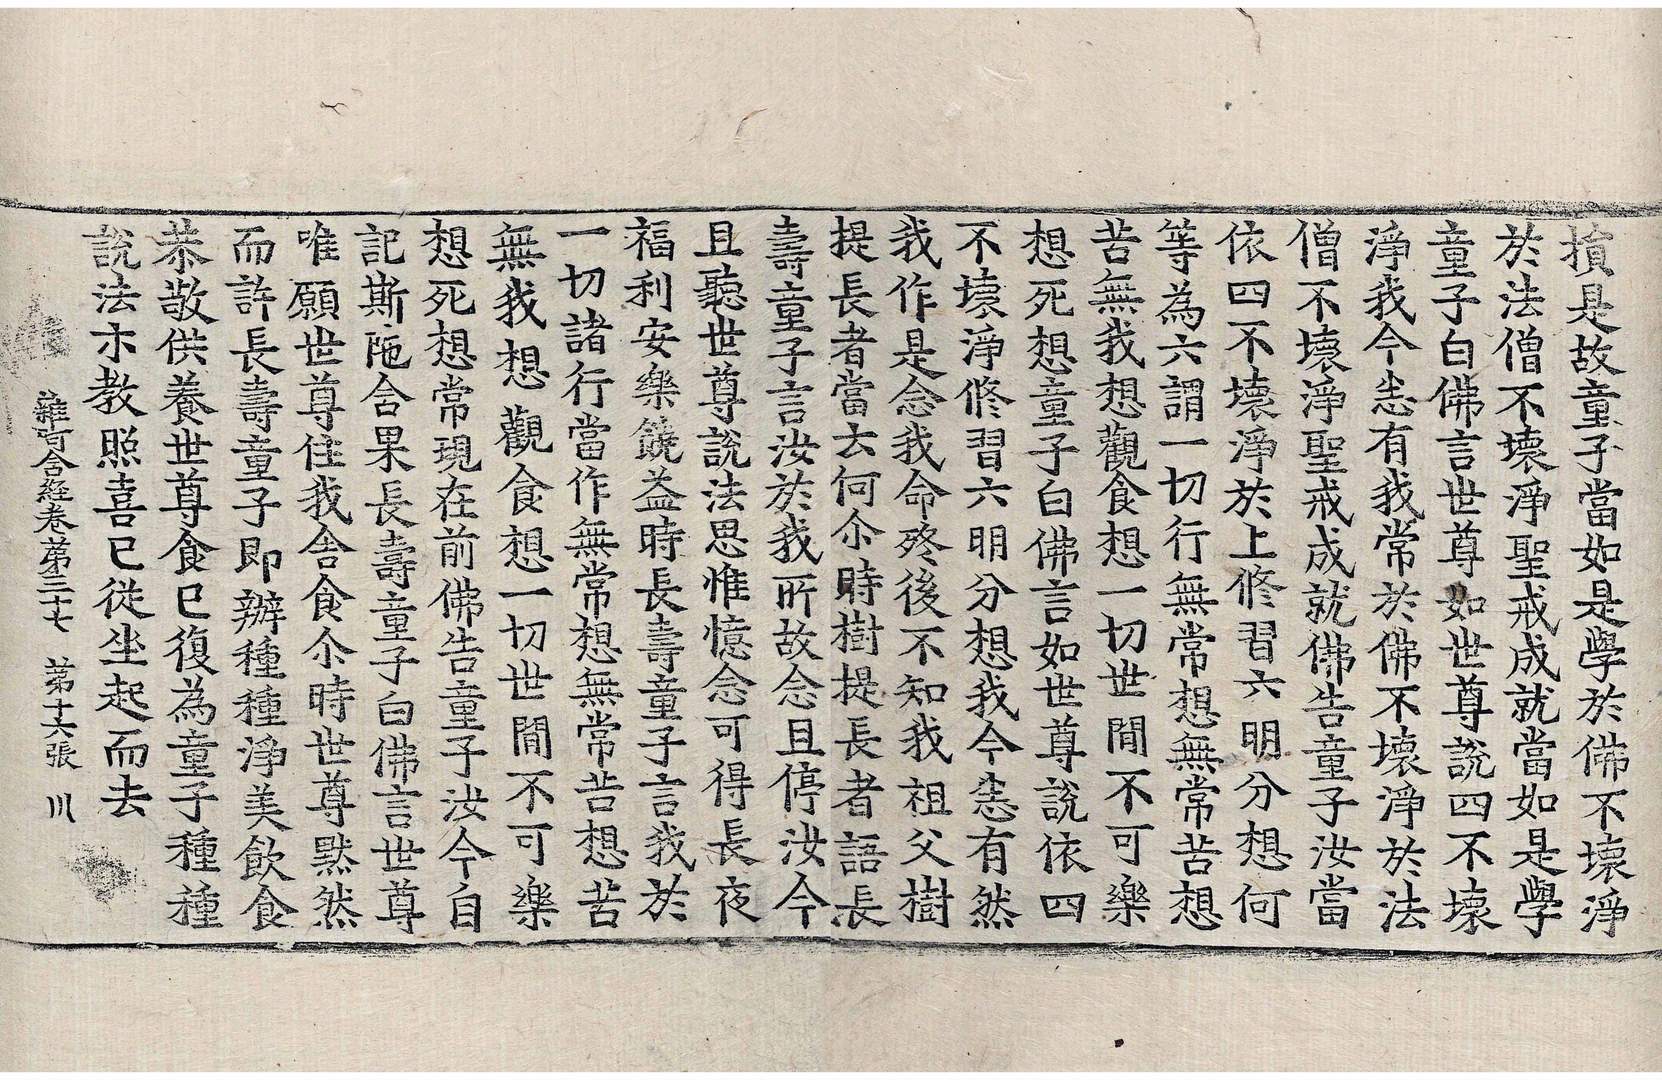 損是故童子當如是學於佛不壞淨
於法僧不壞淨聖戒成就當如是學
童子白佛言世尊如世尊說四不壞
淨我今悉有我常於佛不壞淨於法
僧不壞淨聖戒成就佛告童子汝當
依四不壞淨於上修習六明分想何
等為六謂一切行無常想無常苦想
苦無我想觀食想一切世閒不可樂
想死想童子白佛言如世尊說依四
不壞淨修習六明分想我今悉有然
我作是念我命終後不知我祖父樹
提長者當去何尒時樹提長者語長
壽童子言汝於我所故念且停汝今
且聽世尊說法思惟憶念可得長夜
福利安樂饒益時長壽童子言我於
一切諸行當作無常想無常苦想苦
無我想觀食想一切世閒不可樂
想死想常現在前佛告童子汝今自
記斯陁含果長壽童子白佛言世尊
唯願世尊住我舍食尒時世尊默然
而許長壽童子即辦種種淨美飲食
恭敬供養世尊食已復為童子種種
說法示教照喜已從坐起而去
雜阿含経卷第三十七 第十六張 川